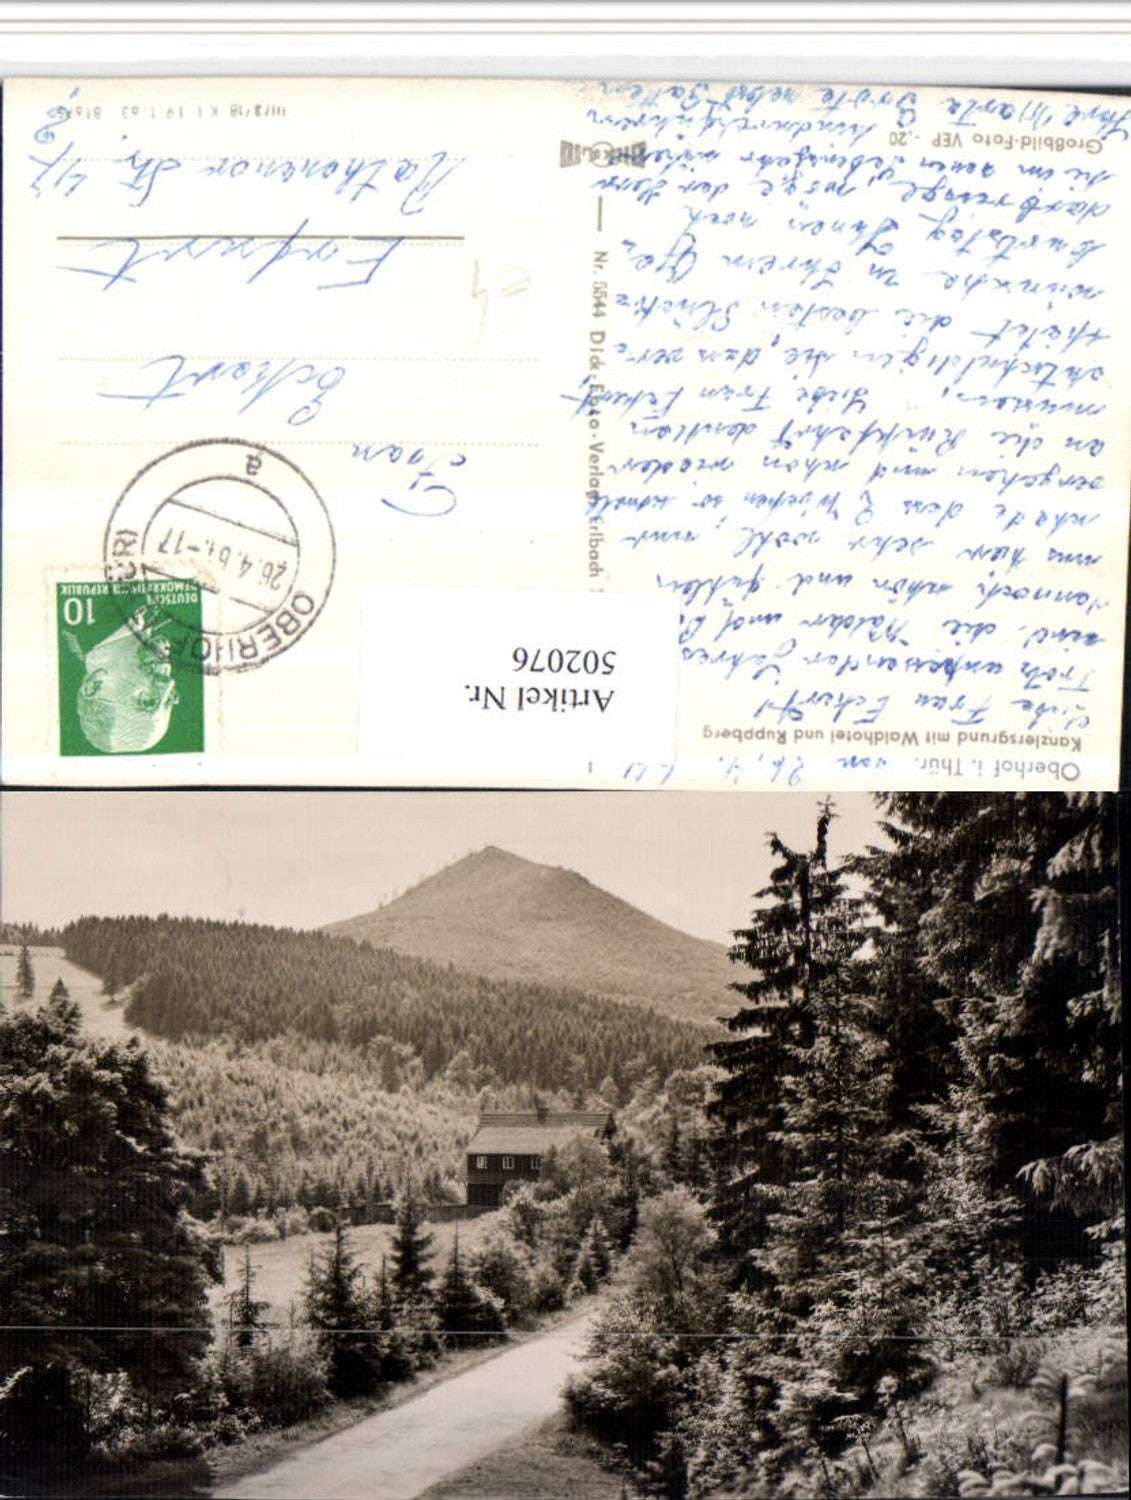 Oberhof i. Thür. von 26. 4.
Kanzlersgrund mit Waldhotel und Ruppberg
Liebe Frau Eckart!
Trotz unpassender Jahres
sind die Wälder und
dennoch schön und fühlen
uns hier sehr wohl, nur
schade dass 2 Wochen so schnell
vergehen und schon wieder
an die Rückfahrt denken
müssen. Liebe Frau Eckart,
entschuldigen Sie, dan ver-
spätet die besten Glücks-
wünsche zu Ihrem Ge-
burtstag Ihnen noch
möge der Herr
Sie im neuen Lebensjahr
hindurchführen
Ihre Marta Grote nebst Gatten
Großbild-Foto VEP -,20
Nr. 5544 Dick-Foto-Verlag Erlbach
Artikel Nr.
502076
DEUTSCHE
DEMOKRATISCHE REPUBLIK
10
OBERHOF (THÜR)
26.4.61.-17
a
Frau
Eckart
Erfurt
Rathenower Str. 47
III/2/18 K 1 19 1 63